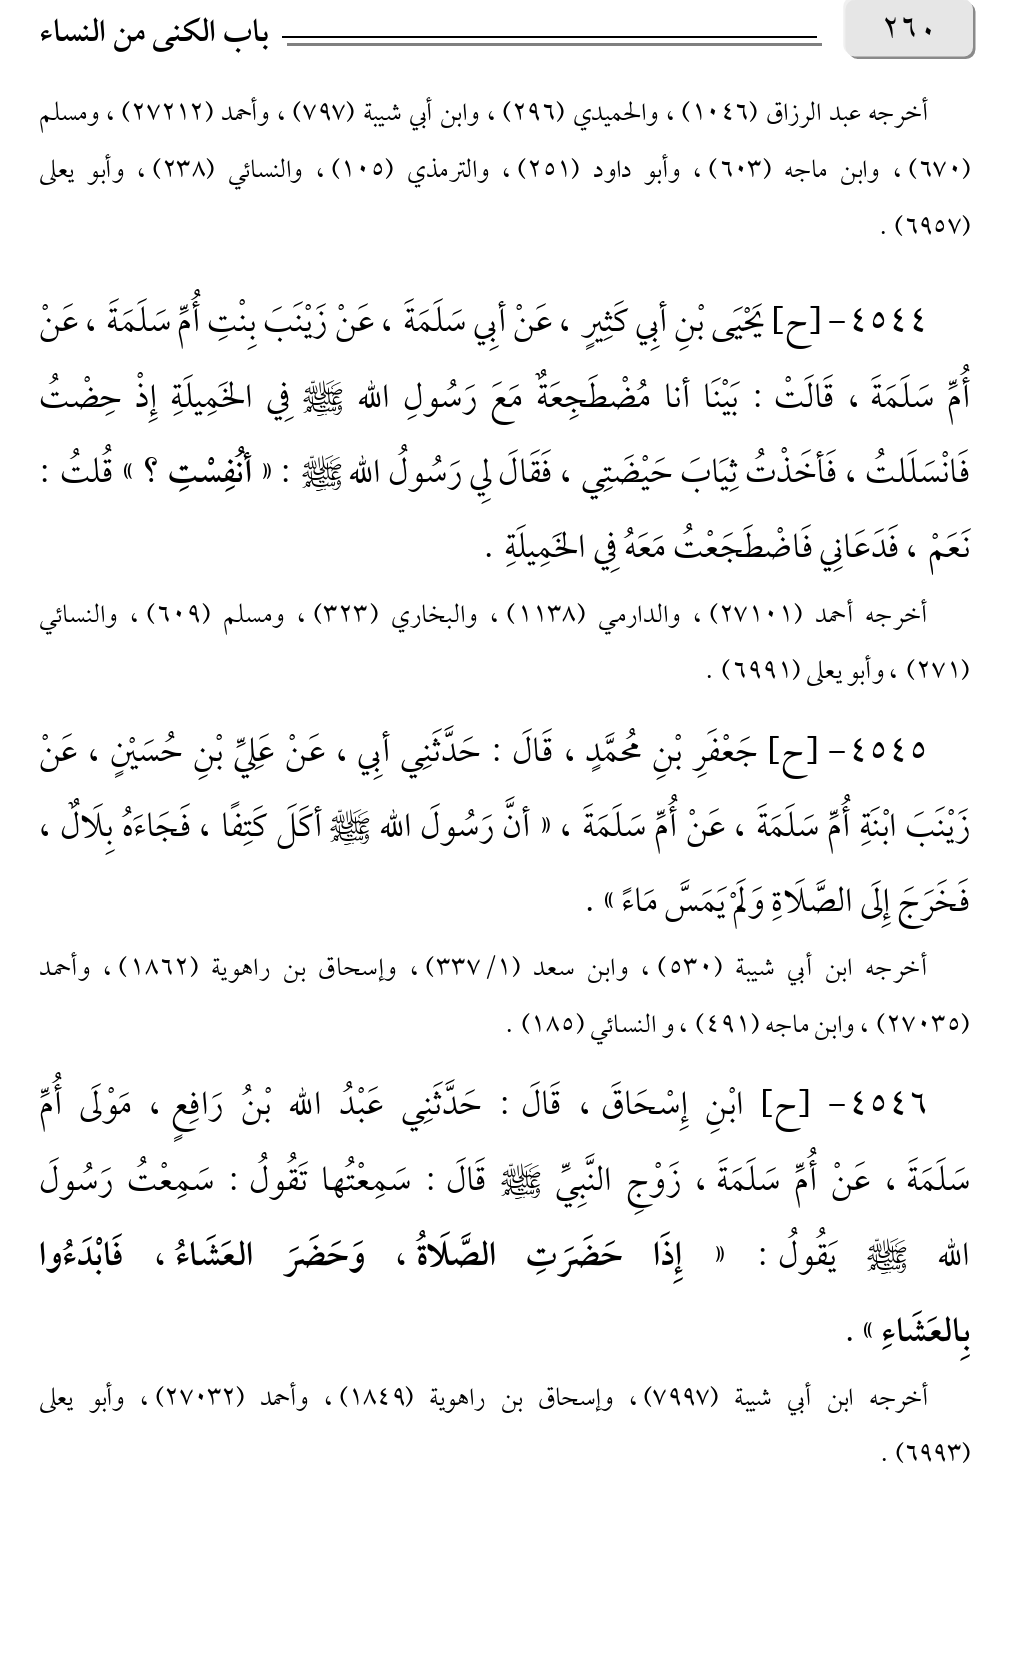 ٢٦٠ باب الكنى من النساء
أخرجه عبد الرزاق (١٠٤٦) ، والحميدي (٢٩٦) ، وابن أبي شيبة (٧٩٧) ، وأحمد (٢٧٢١٢) ، ومسلم
(٦٧٠) ، وابن ماجه (٦٠٣) ، وأبو داود (٢٥١) ، والترمذي (١٠٥) ، والنسائي (٢٣٨) ، وأبو يعلى
(٦٩٥٧) .
٤٥٤٤- [ح] يَحْيَى بْنِ أبِي كَثِيرٍ ، عَنْ أبِي سَلَمَةَ ، عَنْ زَيْنَبَ بِنْتِ أُمِّ سَلَمَةَ ، عَنْ
أُمِّ سَلَمَةَ ، قَالَتْ : بَيْنَا أنا مُضْطَجِعَةٌ مَعَ رَسُولِ الله ﷺ فِي الخَمِيلَةِ إِذْ حِضْتُ
فَانْسَلَلتُ ، فَأخَذْتُ ثِيَابَ حَيْضَتِي ، فَقَالَ لِي رَسُولُ الله ﷺ : « أنُفِسْتِ ؟ » قُلتُ :
نَعَمْ ، فَدَعَانِي فَاضْطَجَعْتُ مَعَهُ فِي الخَمِيلَةِ .
أخرجه أحمد (٢٧١٠١) ، والدارمي (١١٣٨) ، والبخاري (٣٢٣) ، ومسلم (٦٠٩) ، والنسائي
(٢٧١) ، وأبو يعلى (٦٩٩١) .
٤٥٤٥- [ح] جَعْفَرِ بْنِ مُحمَّدٍ ، قَالَ : حَدَّثَنِي أبِي ، عَنْ عَلِيِّ بْنِ حُسَيْنٍ ، عَنْ
زَيْنَبَ ابْنَةِ أُمِّ سَلَمَةَ ، عَنْ أُمِّ سَلَمَةَ ، « أنَّ رَسُولَ الله ﷺ أكَلَ كَتِفًا ، فَجَاءَهُ بِلَالٌ ،
فَخَرَجَ إِلَى الصَّلَاةِ وَلَمْ يَمَسَّ مَاءً » .
أخرجه ابن أبي شيبة (٥٣٠) ، وابن سعد (١/ ٣٣٧) ، وإسحاق بن راهوية (١٨٦٢) ، وأحمد
(٢٧٠٣٥) ، وابن ماجه (٤٩١) ، و النسائي (١٨٥) .
٤٥٤٦- [ح] ابْنِ إِسْحَاقَ ، قَالَ : حَدَّثَنِي عَبْدُ الله بْنُ رَافِعٍ ، مَوْلَى أُمِّ
سَلَمَةَ ، عَنْ أُمِّ سَلَمَةَ ، زَوْجِ النَّبِيِّ ﷺ قَالَ : سَمِعْتُها تَقُولُ : سَمِعْتُ رَسُولَ
الله ﷺ يَقُولُ : « إِذَا حَضَرَتِ الصَّلَاةُ ، وَحَضَرَ العَشَاءُ ، فَابْدَءُوا
بِالعَشَاءِ » .
أخرجه ابن أبي شيبة (٧٩٩٧) ، وإسحاق بن راهوية (١٨٤٩) ، وأحمد (٢٧٠٣٢) ، وأبو يعلى
(٦٩٩٣) .